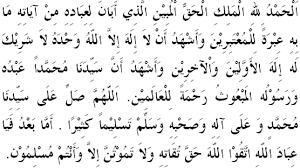 اَلْحَمْدُ للهِ الْمَلِكِ الْحَقِّ الْمُبِيْنِ الَّذِي أَبَانَ لِعِبَادِهِ مِنْ آيَاتِهِ مَا
بِهِ عِبْرَةٌ لِلْمُعْتَبِرِيْنَ وَأَشْهَدُ أَنْ لاَ إِلَهَ إِلاَّ اللهُ وَحْدَهُ لاَ شَرِيْكَ
لَهُ إِلَهُ الأَوَّلِيْنَ وَالآخِرِيْنَ وَأَشْهَدُ أَنَّ سَيِّدَنَا مُحَمَّدًا عَبْدُهُ
وَرَسُوْلُهُ الْمَبْعُوْثُ رَحْمَةً لِلْعَالَمِيْنَ. اَللَّهُمَّ صَلِّ عَلَى سَيِّدِنَا
مُحَمَّدٍ وَ عَلَى آلِهِ وَصَحْبِهِ وَسَلِّمْ تَسْلِيْمًا كَثِيْرًا . أَمَّا بَعْدُ فَيَا
عِبَادَ اللهِ اتَّقُوْا اللهَ حَقَّ تُقَاتِهِ وَلاَ تَمُوْتُنَّ إِلاَّ وَأَنْتُمْ مُسْلِمُوْنَ.